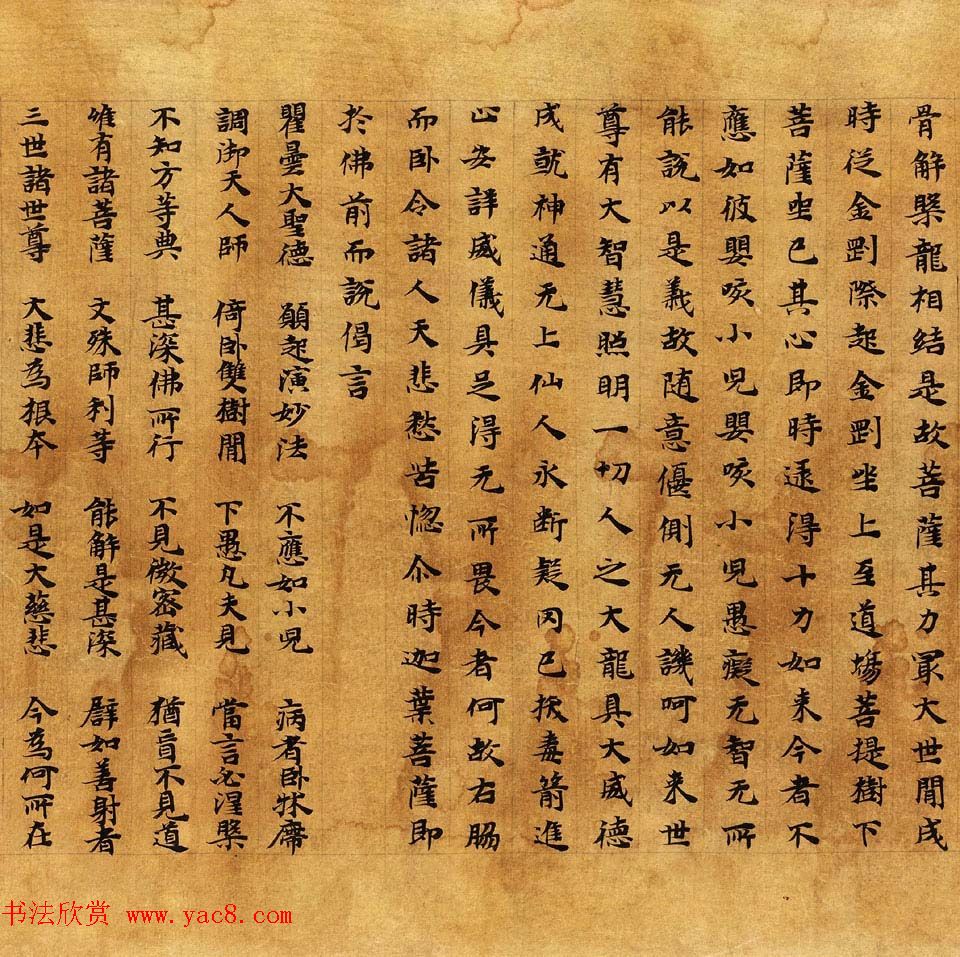 骨解槃龍相結是故菩薩其力冣大世間成
時從金剛際起金剛坐上至道塲菩提樹下
菩薩坐已其心即時逮得十力如来今者不
應如彼嬰咳小児嬰咳小児愚癡无智无所
能說以是義故随意偃側无人譏呵如来世
尊有大智慧照明一切人之大龍具大威德
成就神通无上仙人永断疑冈已拔毒箭進
止安詳威儀具足得无所畏今者何故右脇
而卧令諸人天悲愁苦惱尒時迦葉菩薩即
於佛前而說偈言
瞿曇大聖德 願起演妙法 不應如小児 病者卧牀席
調御天人師 倚卧雙樹間 下愚凡夫見 當言必涅槃
不知方等典 甚深佛所行 不見微密藏 猶盲不見道
唯有諸菩薩 文殊師利等 能解是甚深 譬如善射者
三世諸世尊 大悲為根本 如是大慈悲 今為何所在
书法欣赏 www.yac8.com